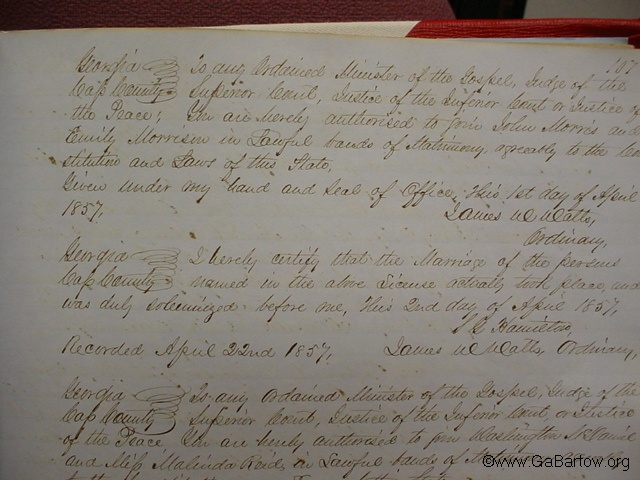 107
Georgia To any Ordained Minister of the Gospel, Judge of the
Cass County Superior Court, Justice of the Inferior Court or Justice of
the Peace; You are hereby authorised to join John Morris and
Emily Morrison in Lawful bands of Matrimony agreably to the Con
stitution and Laws of this State,
Given under my hand and Seal of Office, This 1st day of April
1857, James W Watts,
Ordinary,
Georgia I hereby certify that the Marriage of the persons
Cass County named in the above License actually took place, and
was duly solemnized before me, This 2nd day of April 1857,
Hamilton,
Recorded April 22nd 1857, James W Watts, Ordinary,
Georgia To any Ordained Minister of the Gospel, Judge of the
Cass County Superior Court, Justice of the Inferior Court, or Justice
of the Peace You are hereby authorised to join Washington
and Miss Malinda Reid, in Lawful bands of
©www.GaBartow.org